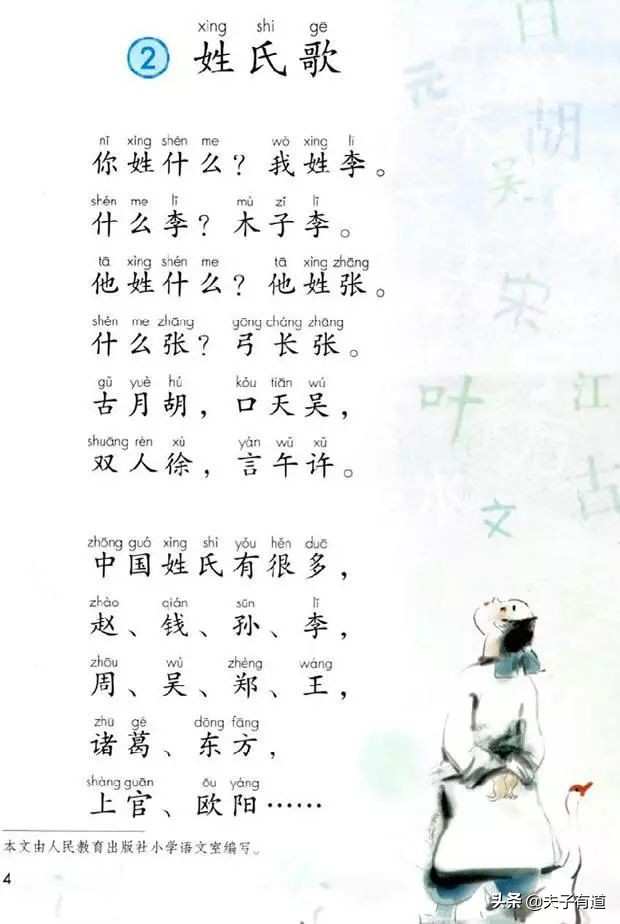 xìng shì gē
2 姓氏歌
nǐ xìng shén me wǒ xìng lǐ
你姓什么？我姓李。
shén me lǐ mù zǐ lǐ
什么李？木子李。
tā xìng shén me tā xìng zhāng
他姓什么？他姓张。
shén me zhāng gōng cháng zhāng
什么张？弓长张。
gǔ yuè hú kǒu tiān wú
古月胡，口天吴，
shuāng rén xú yán wǔ xǔ
双人徐，言午许。
zhōng guó xìng shì yǒu hěn duō
中国姓氏有很多，
zhào qián sūn lǐ
赵、钱、孙、李，
zhōu wú zhèng wáng
周、吴、郑、王，
zhū gě dōng fāng
诸葛、东方，
shàng guān ōu yáng
上官、欧阳……
本文由人民教育出版社小学语文室编写。
4
白
元
胡
吴
宋
叶
江
古
文
头条 @夫子有道